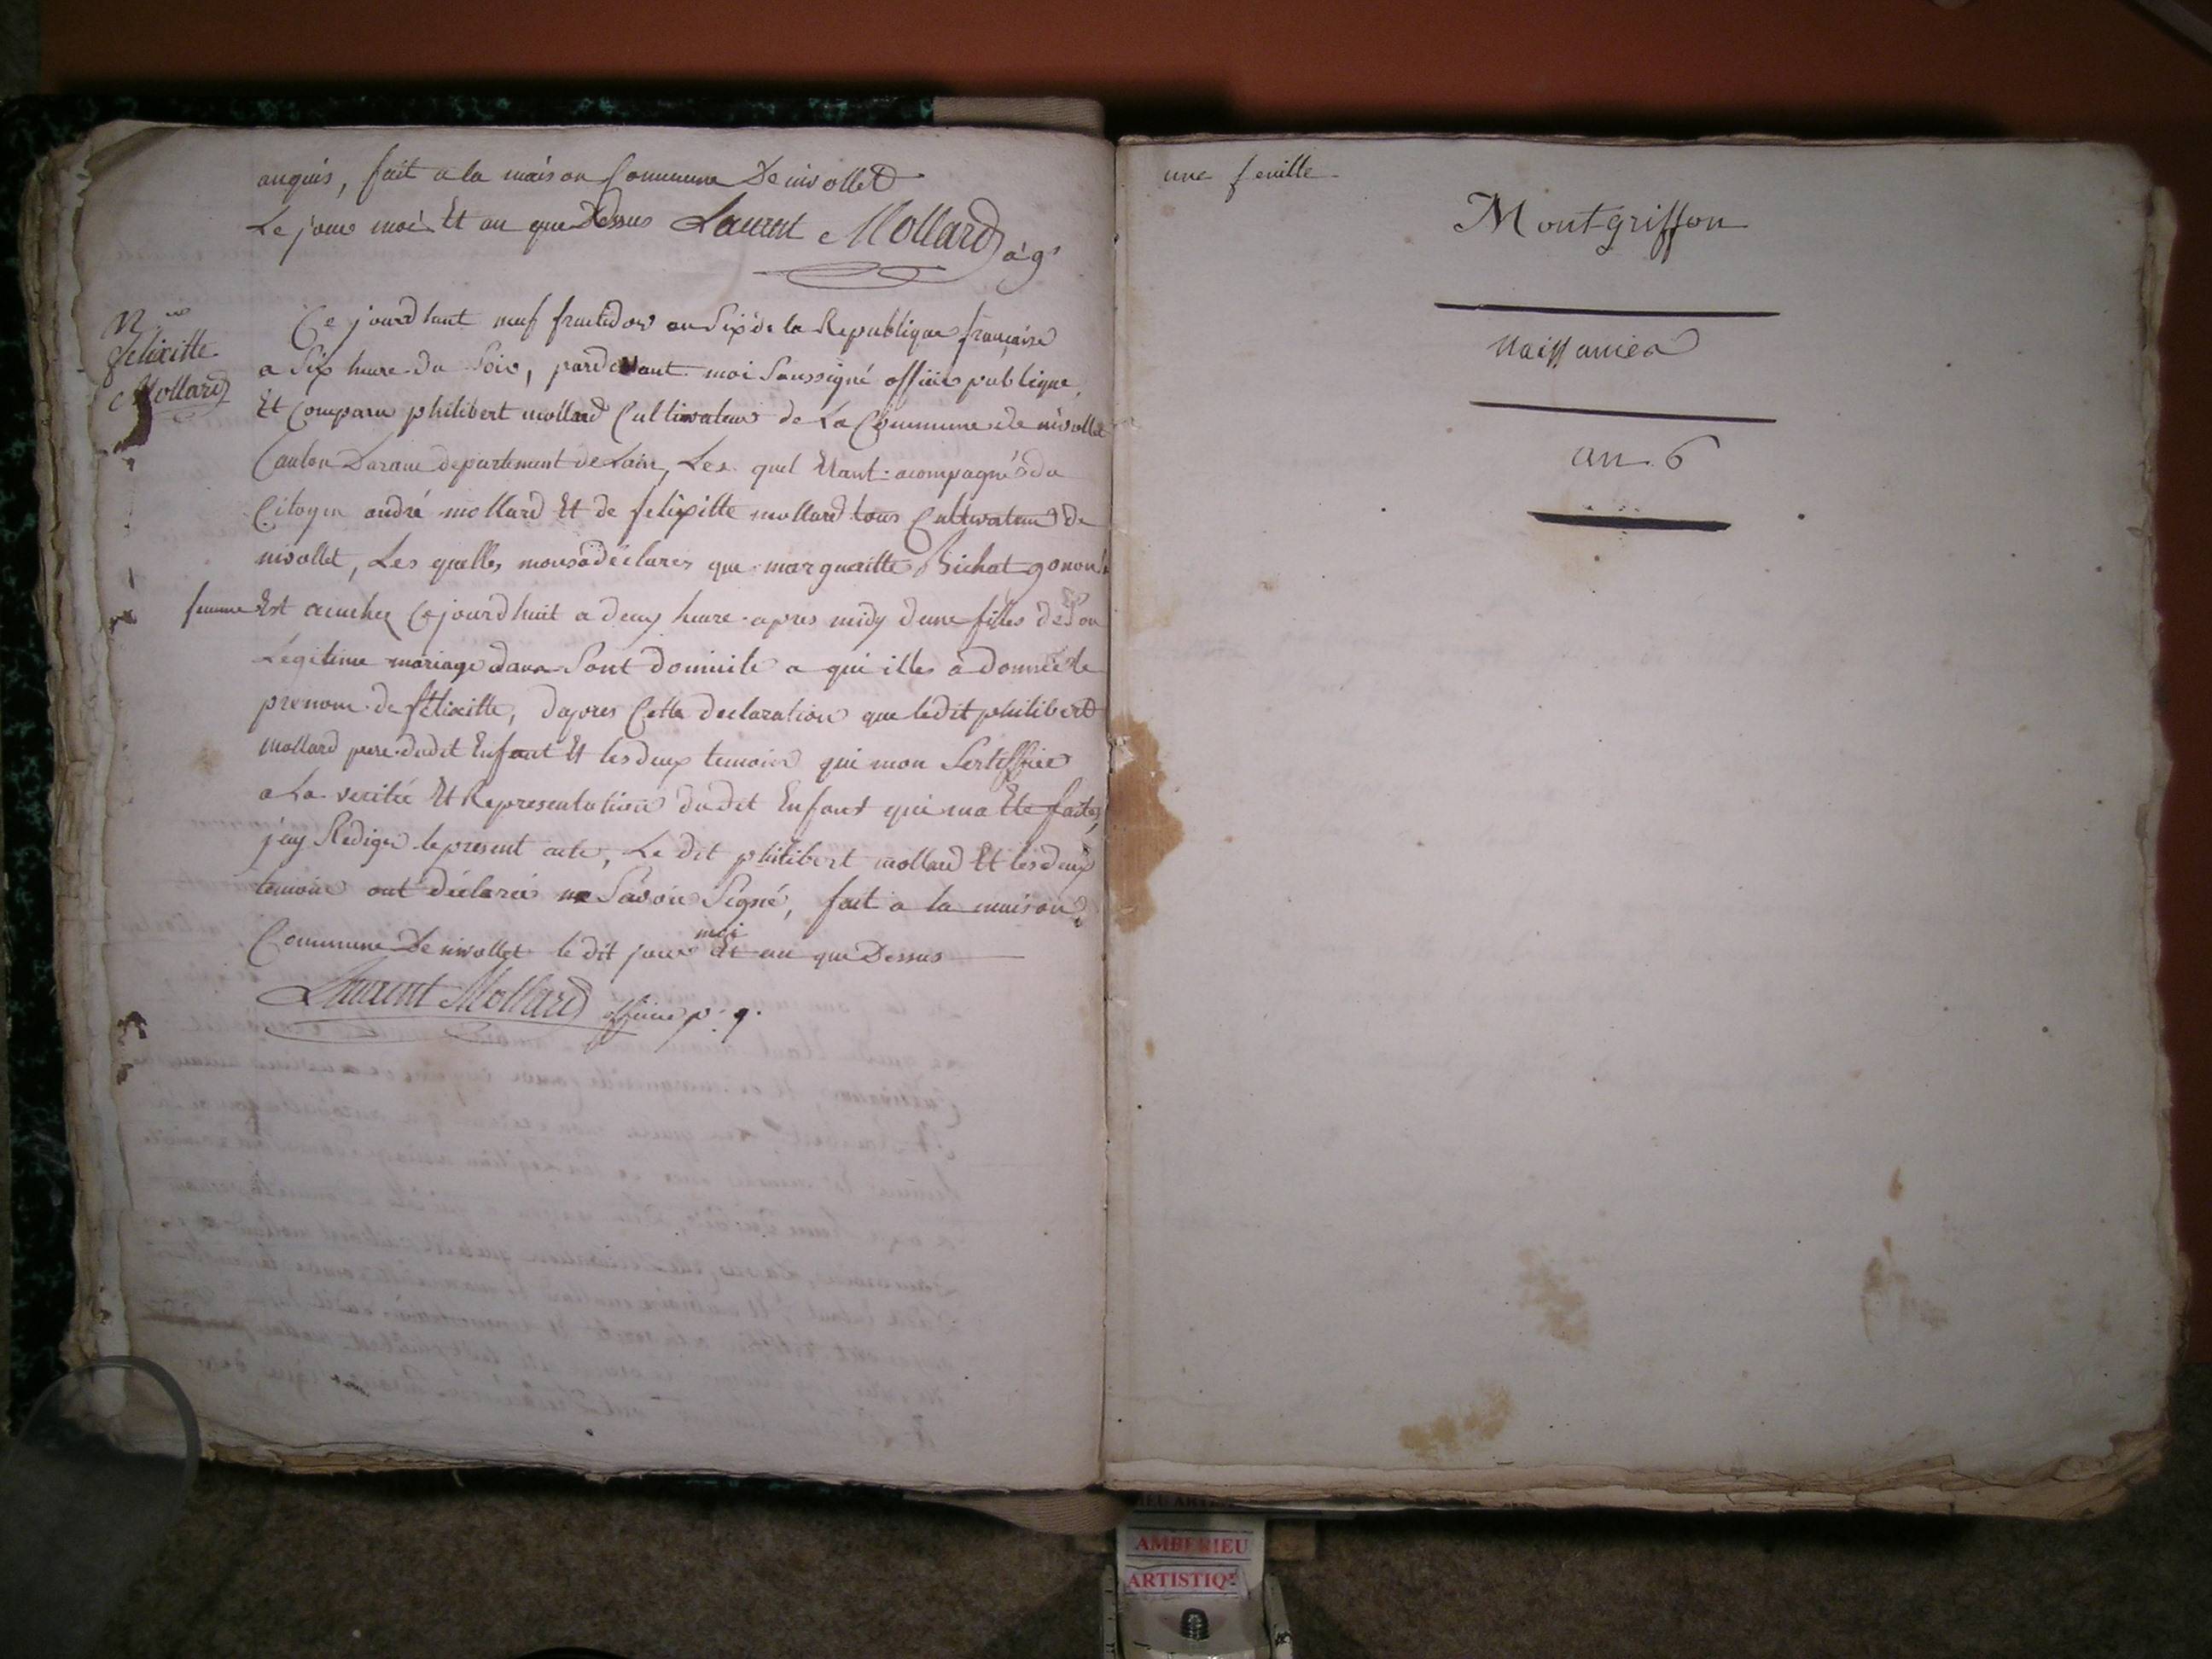 anquis, fait a la maison Commune De nivollet
Le jour moi Et an que Dessus Laurent Mollard
N
felixitte
Mollard
Ce jourdhuit neuf fructidor an Six de la Republique française
a Six heure du Soir, pardevant moi Soussigné officier publique,
Et Comparu philibert mollard Cultivateur de La Commune de nivollet
Canton Daranc departement de Lain, Les quel Etant acompagnés du
Citoyen andré mollard Et de felixitte mollard tous Cultivateur de
nivollet, Les quelles nous a déclarer que margueritte Bichat gonon
femme Est acuchez Cejourdhuit a deux heure apres midy dune filles de Son
Légitime mariage dans Sont domicile a qui illes à donnée le
prenom de félixitte, dapres Cette declaration que ledit philibert
Mollard pere dudit Enfant Et les deux temoins qui mon Sertiffier
a La veritée Et Representation dudit Enfant qui ma Ete faites,
jay Rediger le present acte, Le dit philibert mollard Et les deux
temoins ont déclarée ne Savoir Signé, fait a la maison
Commune De nivollet le dit jour moi Et an que Dessus
Laurent Mollard officier p. q.
une feuille
Montgriffon
Naissances
an 6
AMBERIEU
ARTISTIQ